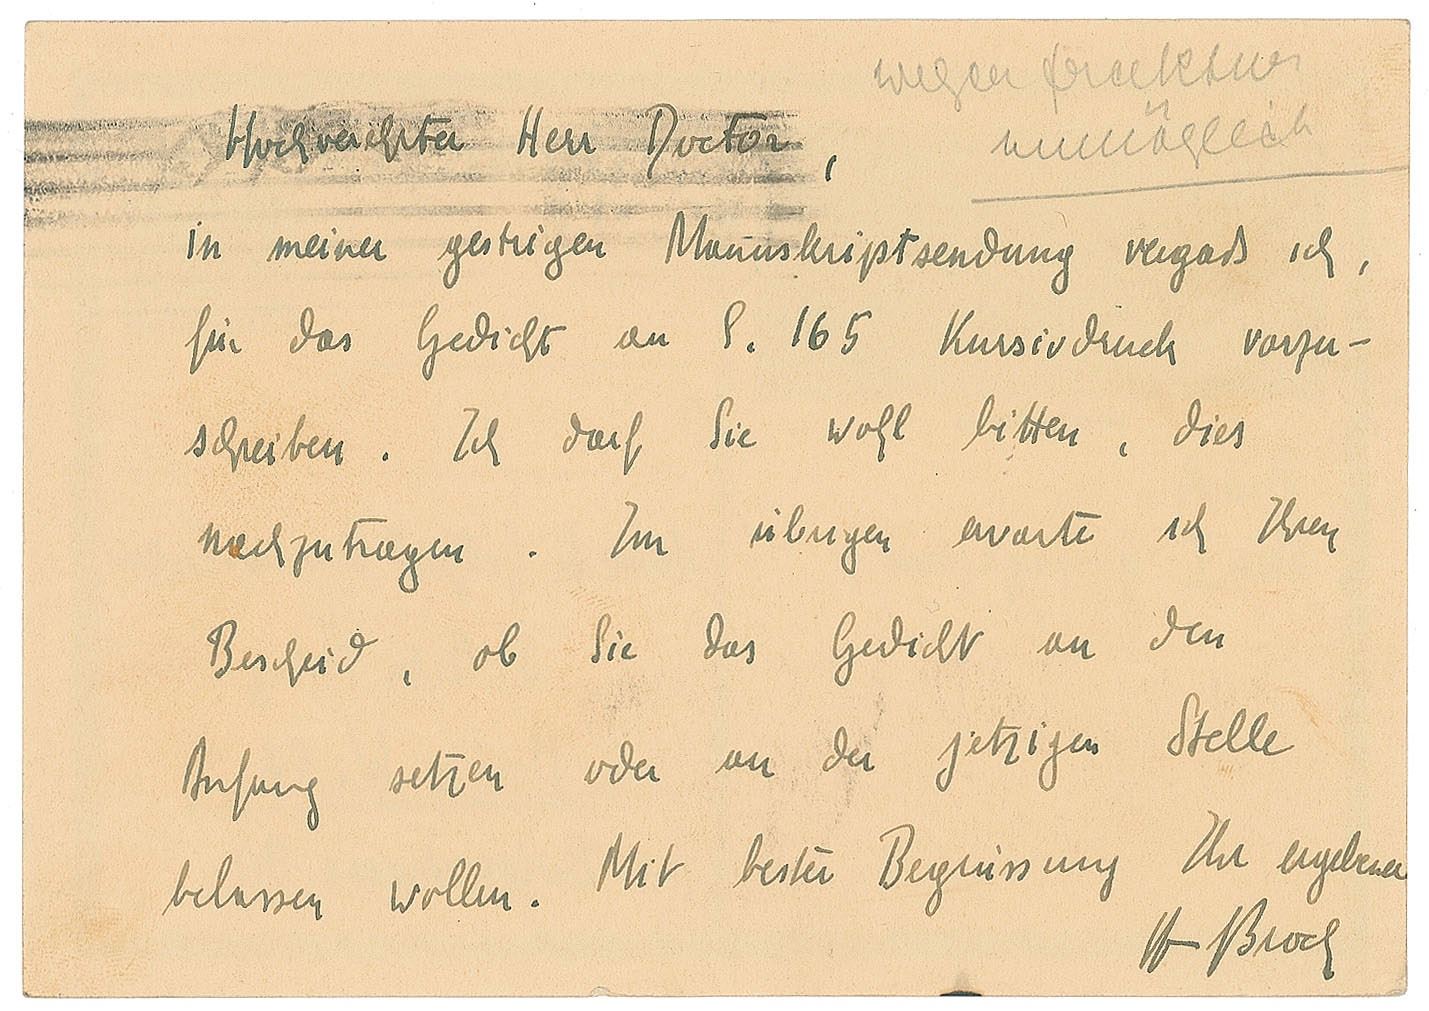 wegen Fraktur
unmöglich
Hochverehrter Herr Doctor,
in meiner gestrigen Manuskriptsendung vergaß ich,
für das Gedicht an S. 165 Kursivdruck vorzu-
schreiben. Ich darf Sie wohl bitten, dies
nachzutragen. Im übrigen erwarte ich Ihren
Bescheid, ob Sie das Gedicht an den
Anfang setzen oder an der jetzigen Stelle
belassen wollen. Mit bester Begrüssung Ihr ergebener
H Broch